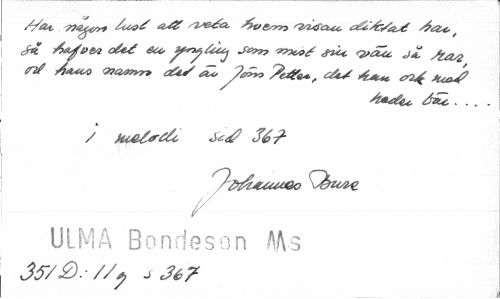 Har någon lust att veta hvem visan diktat har,
så hafver det en yngling som mist sin vän så rar,
och hans namn det är Jöns Petter, det han ock med
heder bär....
1 melodi sid 367
Johannes Bure
ULMA Bondeson Ms
351 D: 11 g s 367